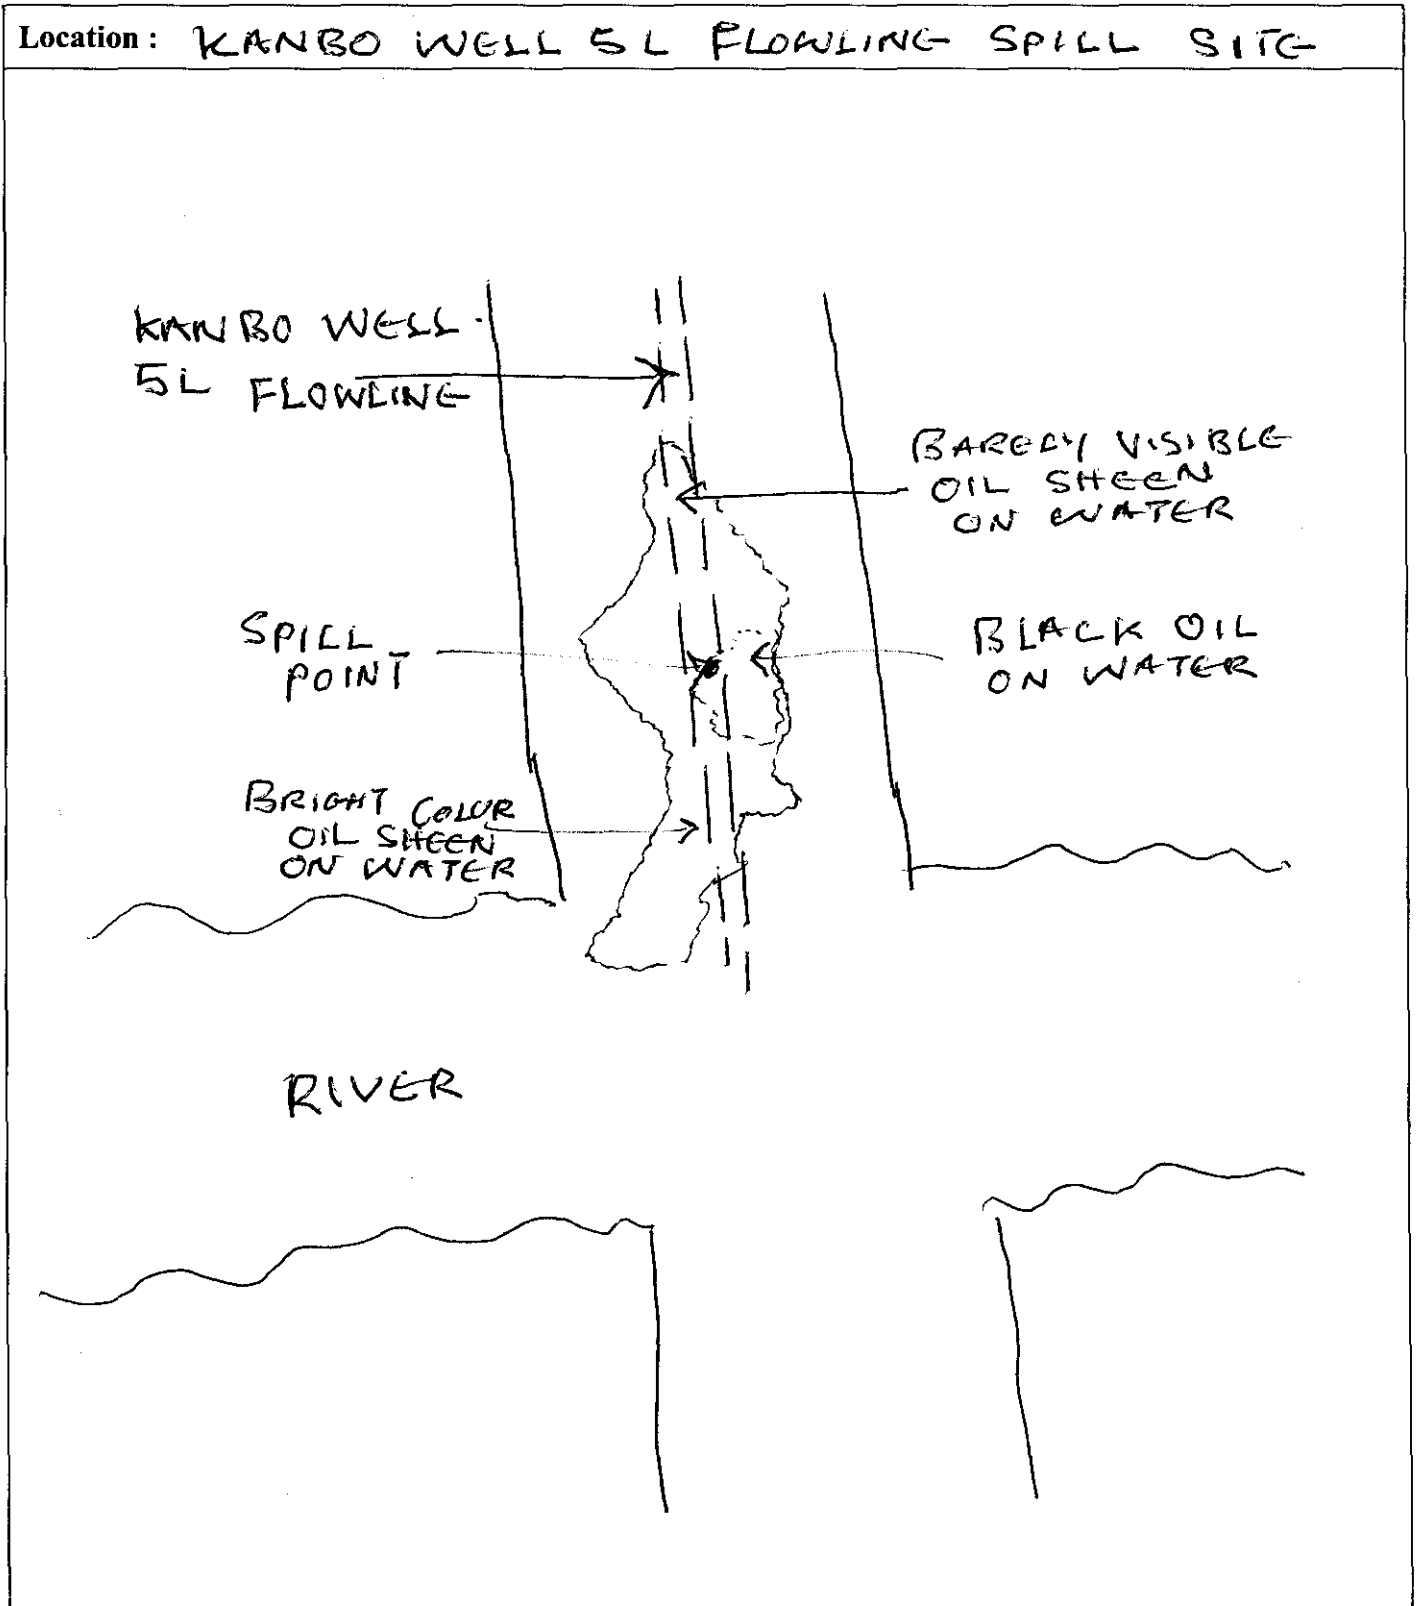 Location : KANBO WELL 5L FLOWLING SPILL SITE
KANBO WELL
5L FLOWLINE
BARELY VISIBLE
OIL SHEEN
ON WATER
SPILL
POINT
BLACK OIL
ON WATER
BRIGHT COLOR
OIL SHEEN
ON WATER
RIVER